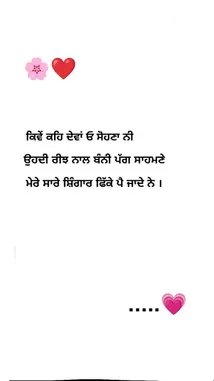 🌸❤️
ਕਿਵੇਂ ਕਹਿ ਦੇਵਾਂ ਓ ਸੋਹਣਾ ਨੀ
ਉਹਦੀ ਰੀਝ ਨਾਲ ਬੰਨੀ ਪੱਗ ਸਾਹਮਣੇ
ਮੇਰੇ ਸਾਰੇ ਸ਼ਿੰਗਾਰ ਫਿੱਕੇ ਪੈ ਜਾਦੇ ਨੇ ।
.....💗